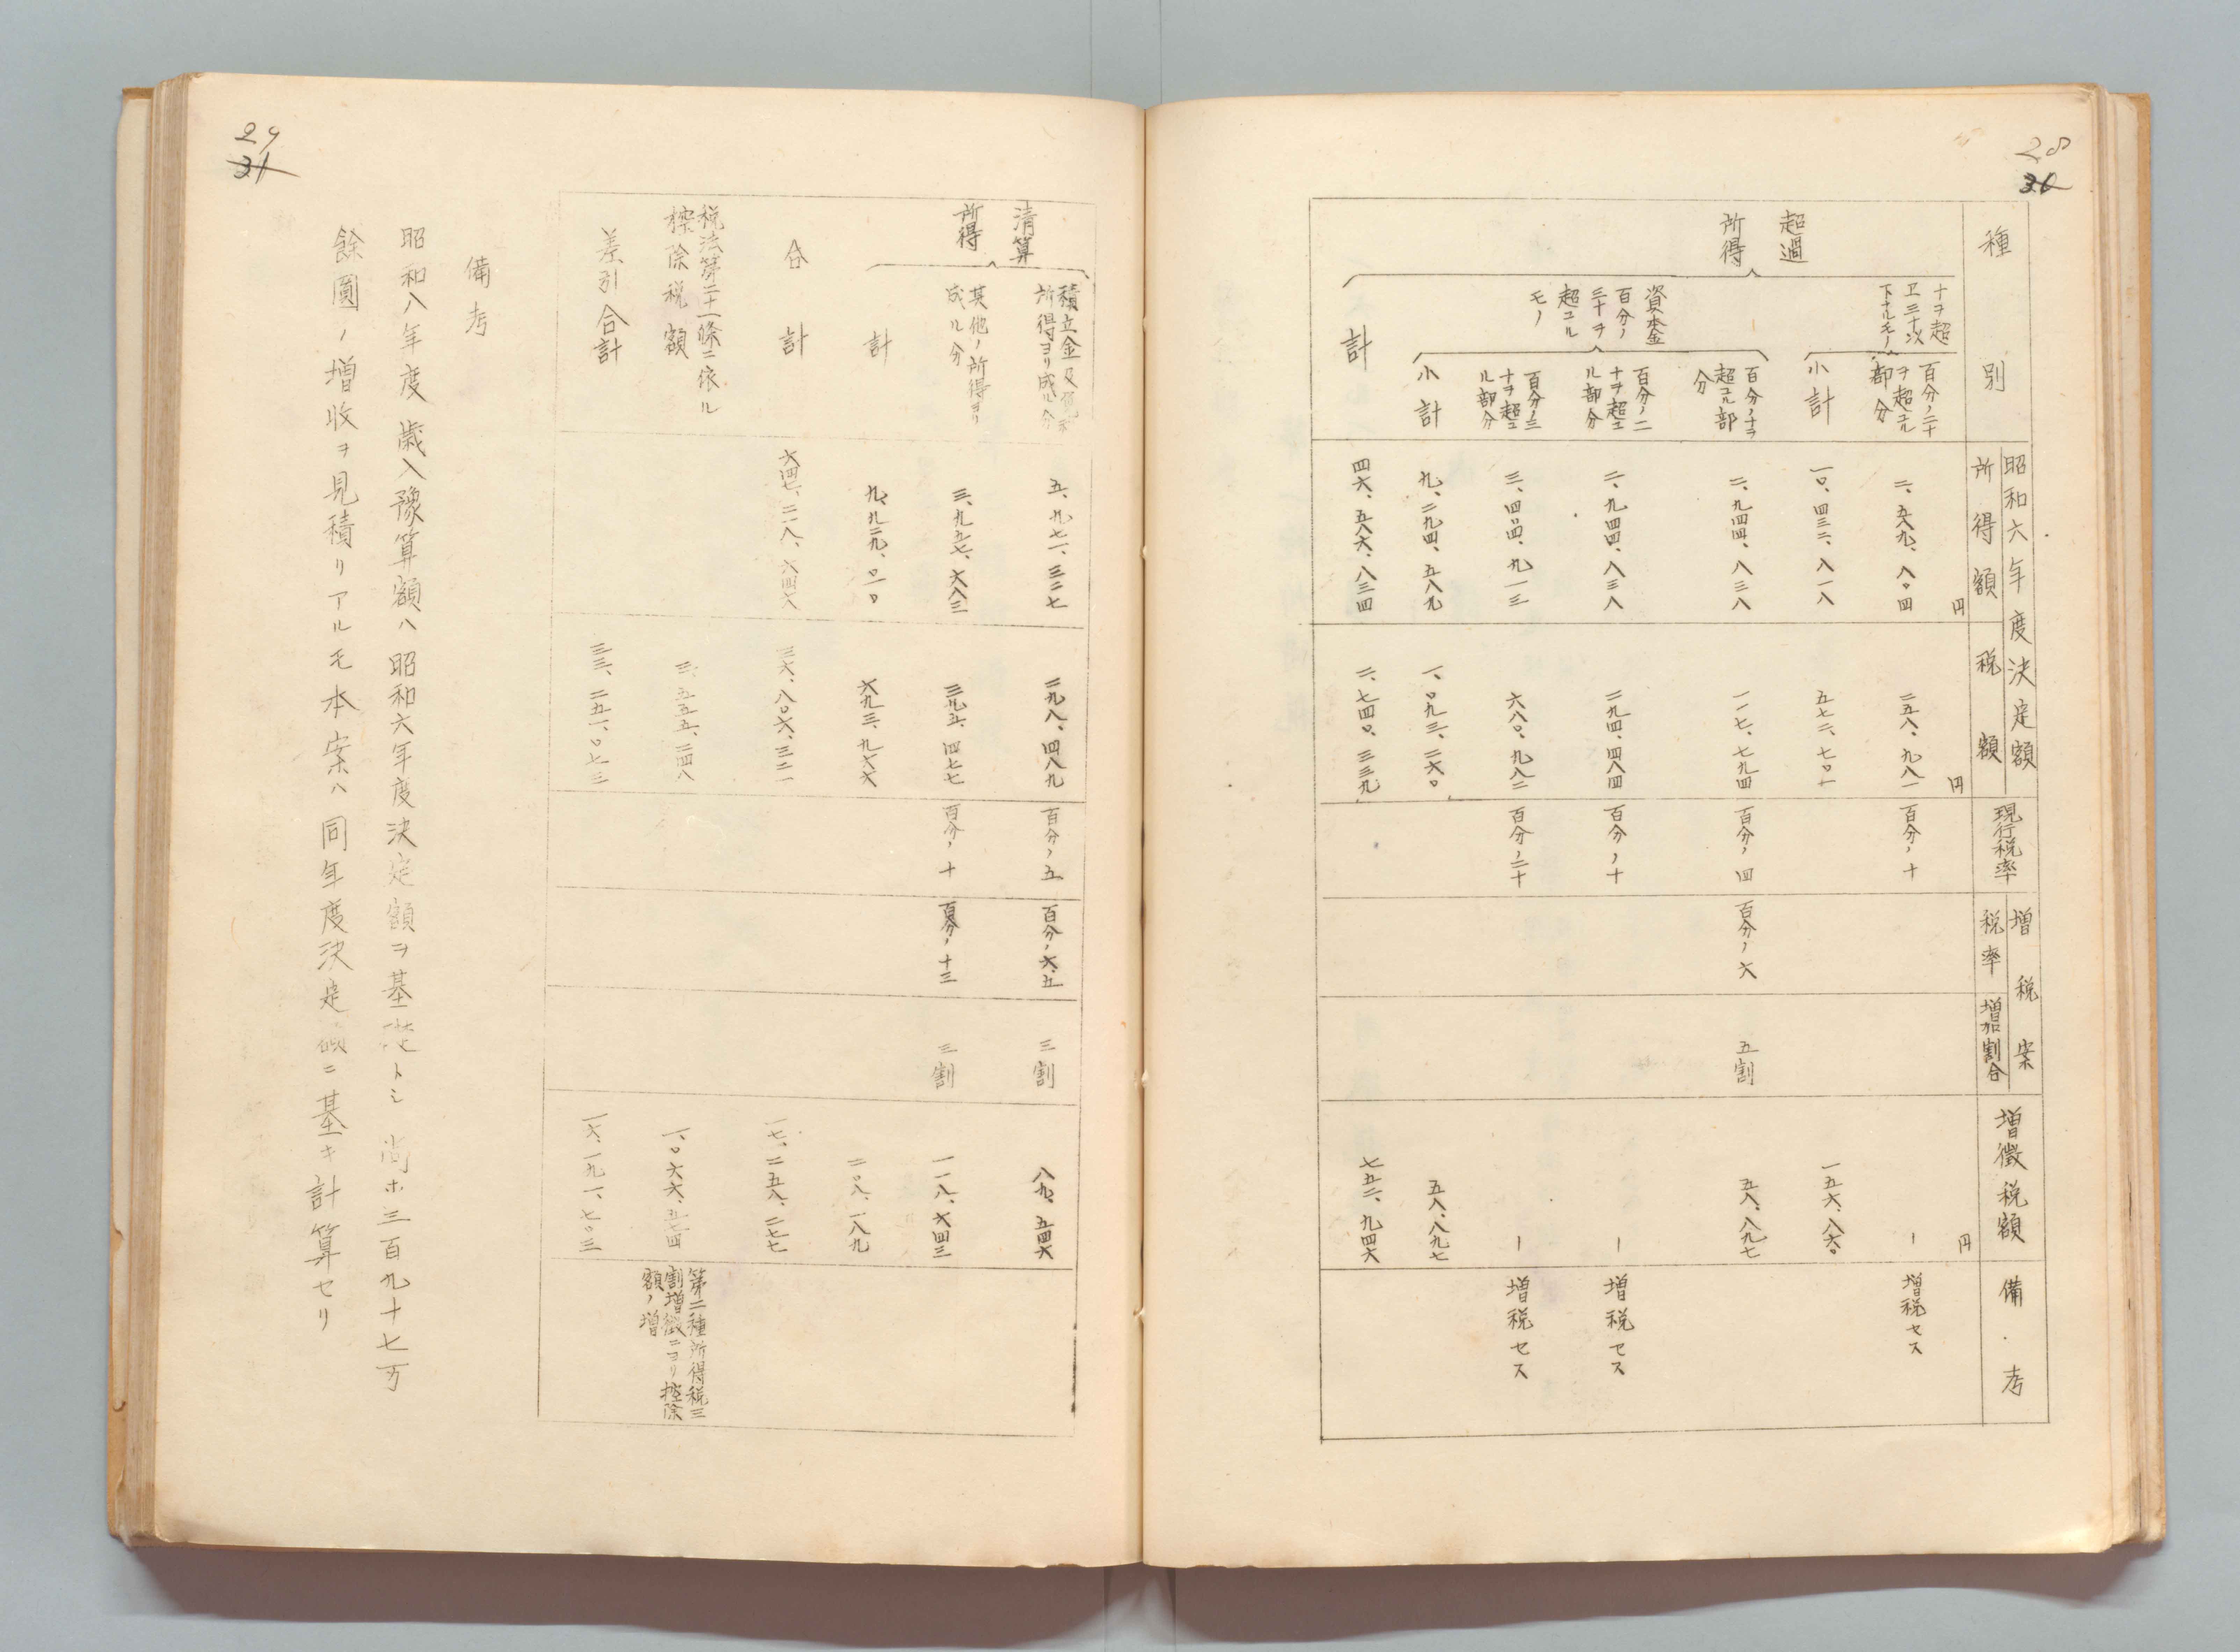 28
30
種別
昭和六年度決定額
所得額
税額
現行税率
増税案
税率
増加割合
増徴税額
備考
円
円
円
超過所得
十ヲ超
エ三十以
下ナルモノ
百分ノ二十
ヲ超ユル
部分
二、五八九、八〇四
二五八、九八一
百分ノ十
ー
増税セス
小計
一〇、四三二、八一八
五七二、七〇一
一五六、八六〇
資本金
百分ノ
三十ヲ
超ユル
モノ
百分ノ十ヲ
超ユル部
分
二、九四四、八三八
一一七、七九四
百分ノ四
百分ノ六
五割
五八、八九七
百分ノ二
十ヲ超ユ
ル部分
二、九四四、八三八
二九四、四八四
百分ノ十
ー
増税セス
百分ノ三
十ヲ超ユ
ル部分
三、四〇四、九一三
六八〇、九八二
百分ノ二十
ー
増税セス
小計
九、二九四、五八九
一、〇九三、二六〇
五八、八九七
計
四六、五八六、八三四
二、七四〇、三三九
七五二、九四六
29
31
清算所得
積立金及
所得ヨリ成ル分
五、九七一、三二七
二九八、四八九
百分ノ五
百分ノ六、五
三割
八九、五四六
其他ノ所得ヨリ
成ル分
三、九五七、六八三
三九五、四七七
百分ノ十
百分ノ十三
三割
一一八、六四三
計
九、九二九、〇一〇
六九三、九六六
二〇八、一八九
合計
六四七、二一八、六四六
三六、八〇六、三二一
一七、二五八、二七七
税法第二十一條ニ依ル
控除税額
三、五五五、二四八
一、〇六六、五七四
第二種所得税三
割増徴ニヨリ控除
額ノ増
差引合計
三三、二五一、〇七三
一六、一九一、七〇三
備考
昭和八年度歳入豫算額ハ昭和六年度決定額ヲ基礎トシ尚ホ三百九十七万
餘圓ノ増收ヲ見積リアルモ本案ハ同年度決定額ニ基キ計算セリ